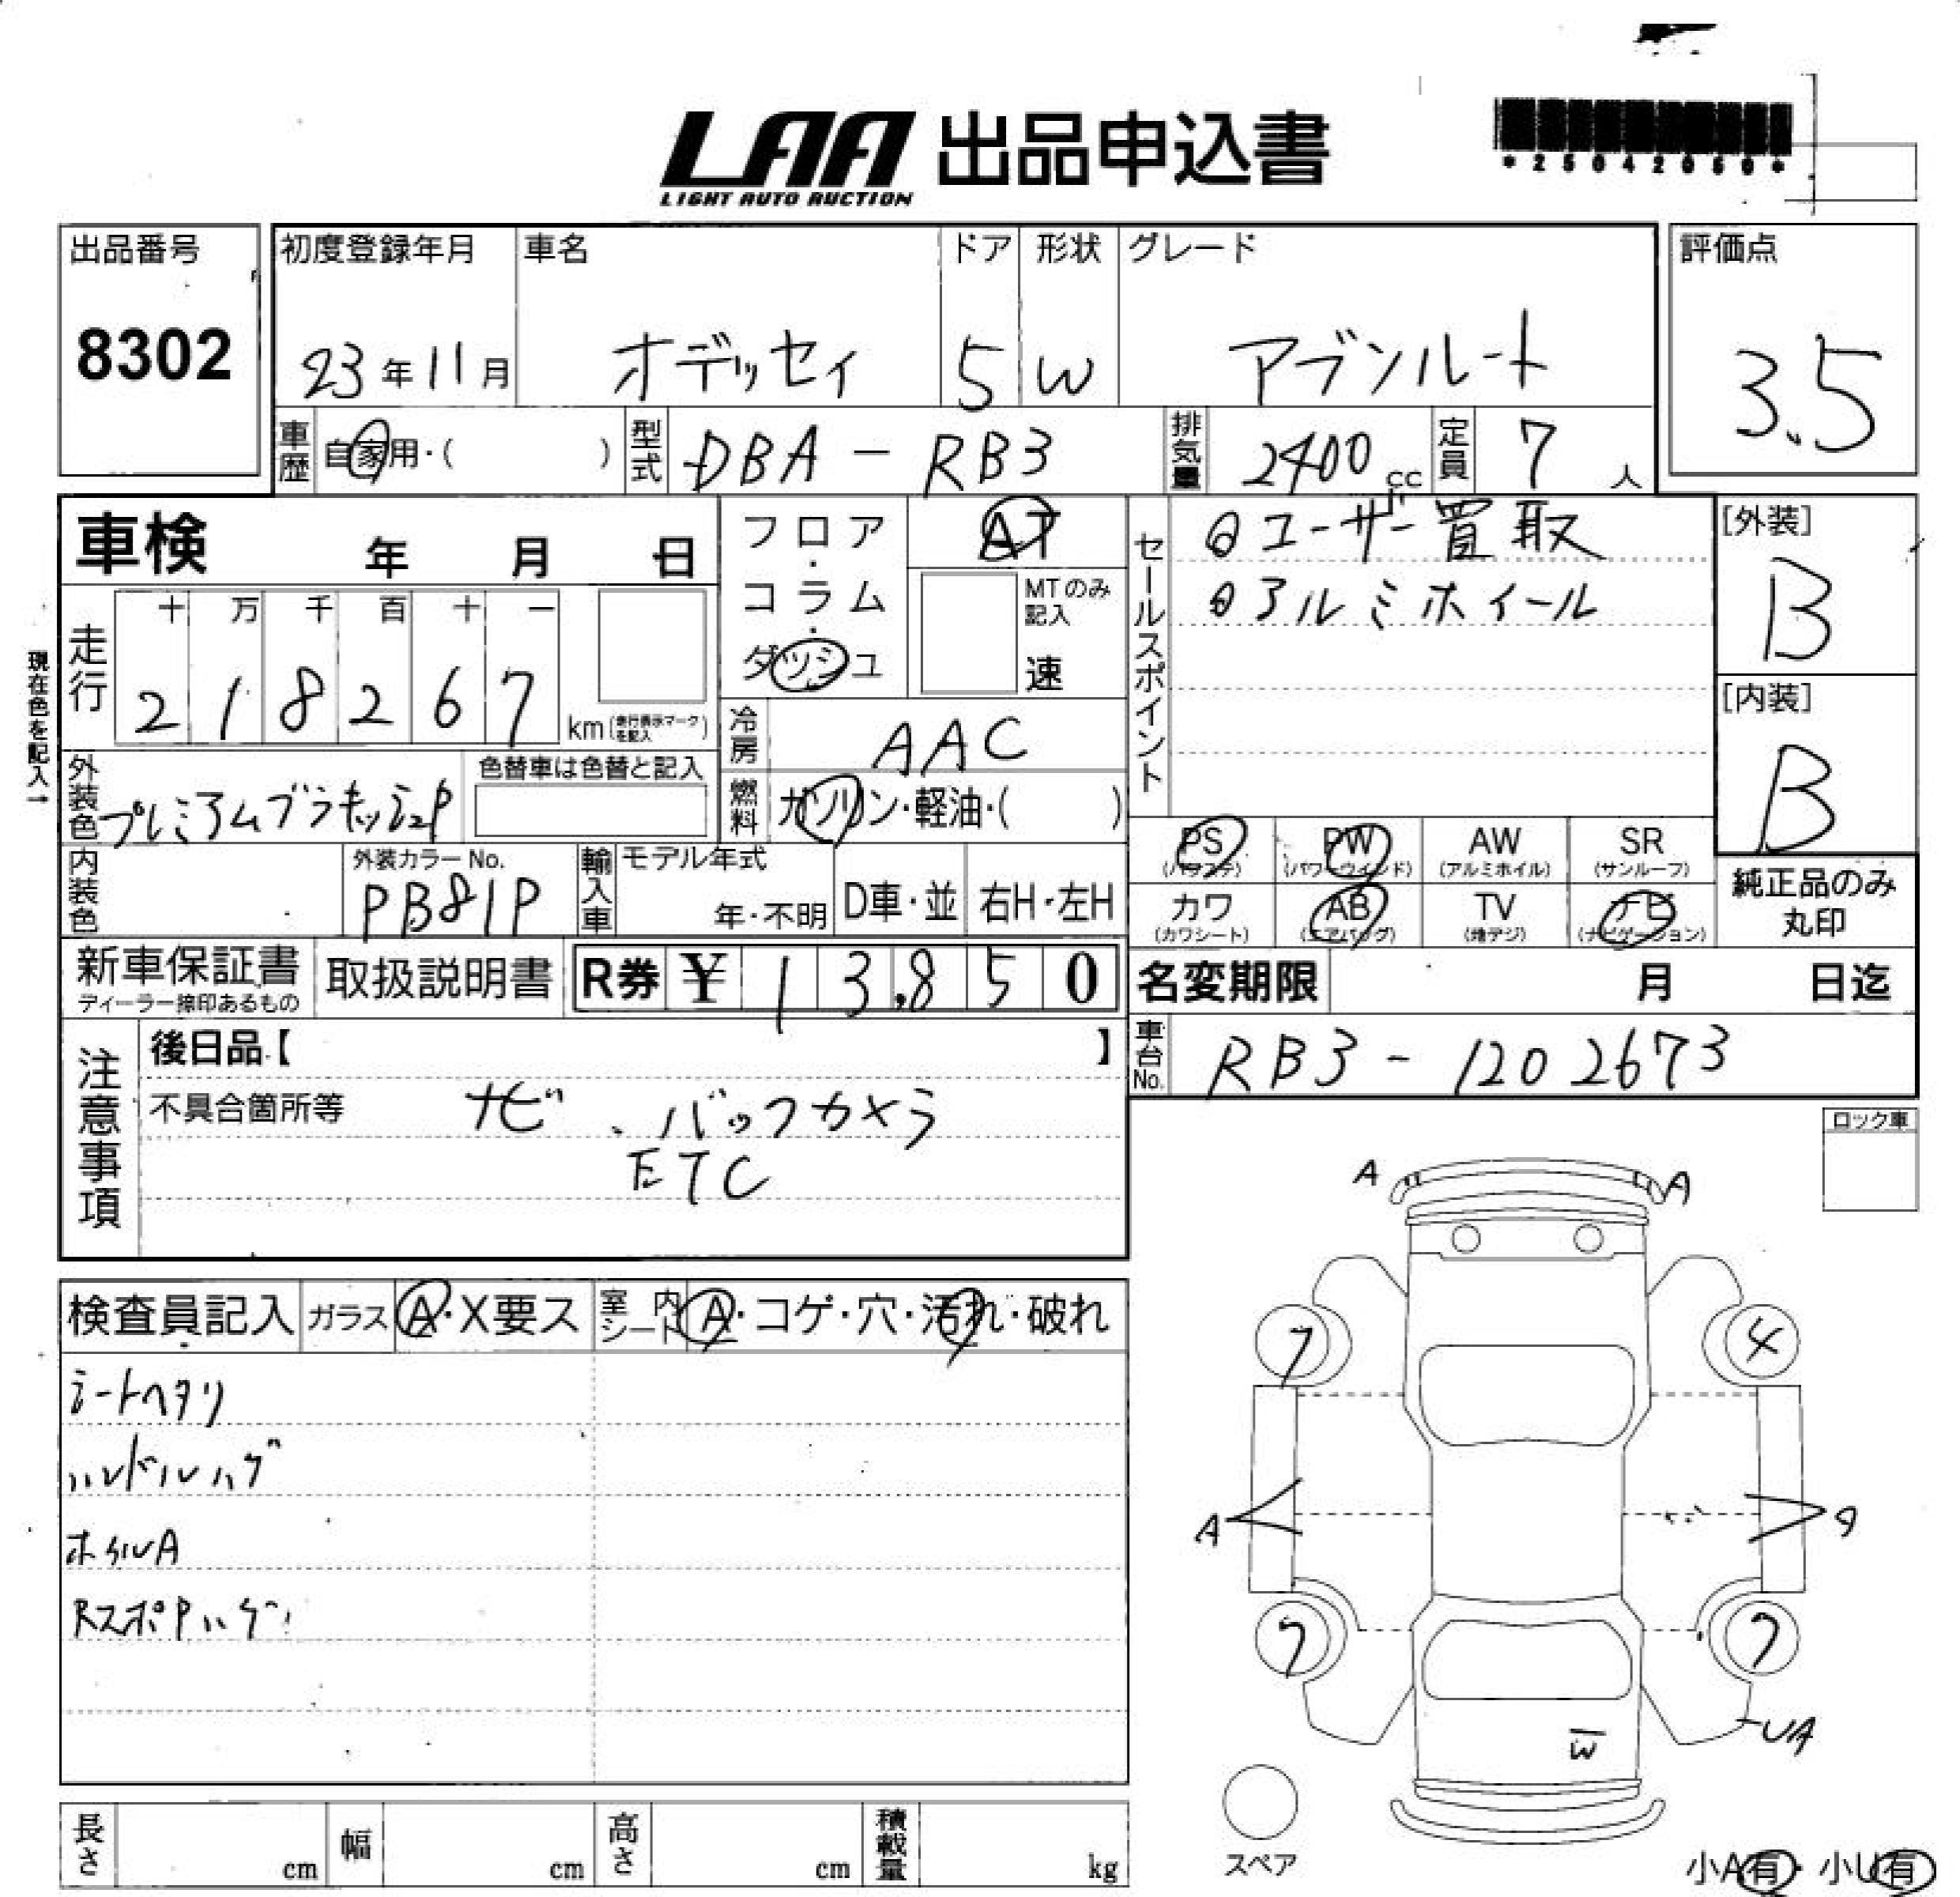 LAA 出品申込書
LIGHT AUTO AUCTION
*25042050*
出品番号 初度登録年月 車名 ドア 形状 グレード 評価点
8302 23年11月 オデッセイ 5 W アブソルート 3.5
車歴 自家用・( ) 型式 DBA-RB3 排気量 2400cc 定員 7人
車検 年 月 日
フロア・コラム・ダッシュ AT
MTのみ記入
速
セールスポイント
ユーザー買取
アルミホイール
[外装]
B
[内装]
B
現在色を記入→
走行 十 万 千 百 十 一
2 1 8 2 6 7 km (走行表示マークを記入)
冷房 AAC
外装色 プレミアムブラキッシュP 色替車は色替と記入
燃料 ガソリン・軽油・( )
PS (パワステ) PW (パワーウィンド) AW (アルミホイル) SR (サンルーフ)
カワ (カワシート) AB (エアバッグ) TV (地デジ) ナビ (ナビゲーション)
純正品のみ丸印
内装色 外装カラーNo. PB81P 輸入車 モデル年式 年・不明 D車・並 右H・左H
新車保証書 ディーラー捺印あるもの 取扱説明書 R券 ¥ 13,850
名変期限 月 日迄
車台No. RB3-1202673
注意事項
後日品【 】
不具合箇所等 ナビ、バックカメラ
ETC
ロック車
A A
検査員記入 ガラス A・X要ス 室内シート A・コゲ・穴・汚れ・破れ
シートヘタリ
ハンドルハゲ
ホイルA
RスポPハゲ
7 4
A A
7 7
UA
W
スペア
長さ cm 幅 cm 高さ cm 積載量 kg
小A有・小U有